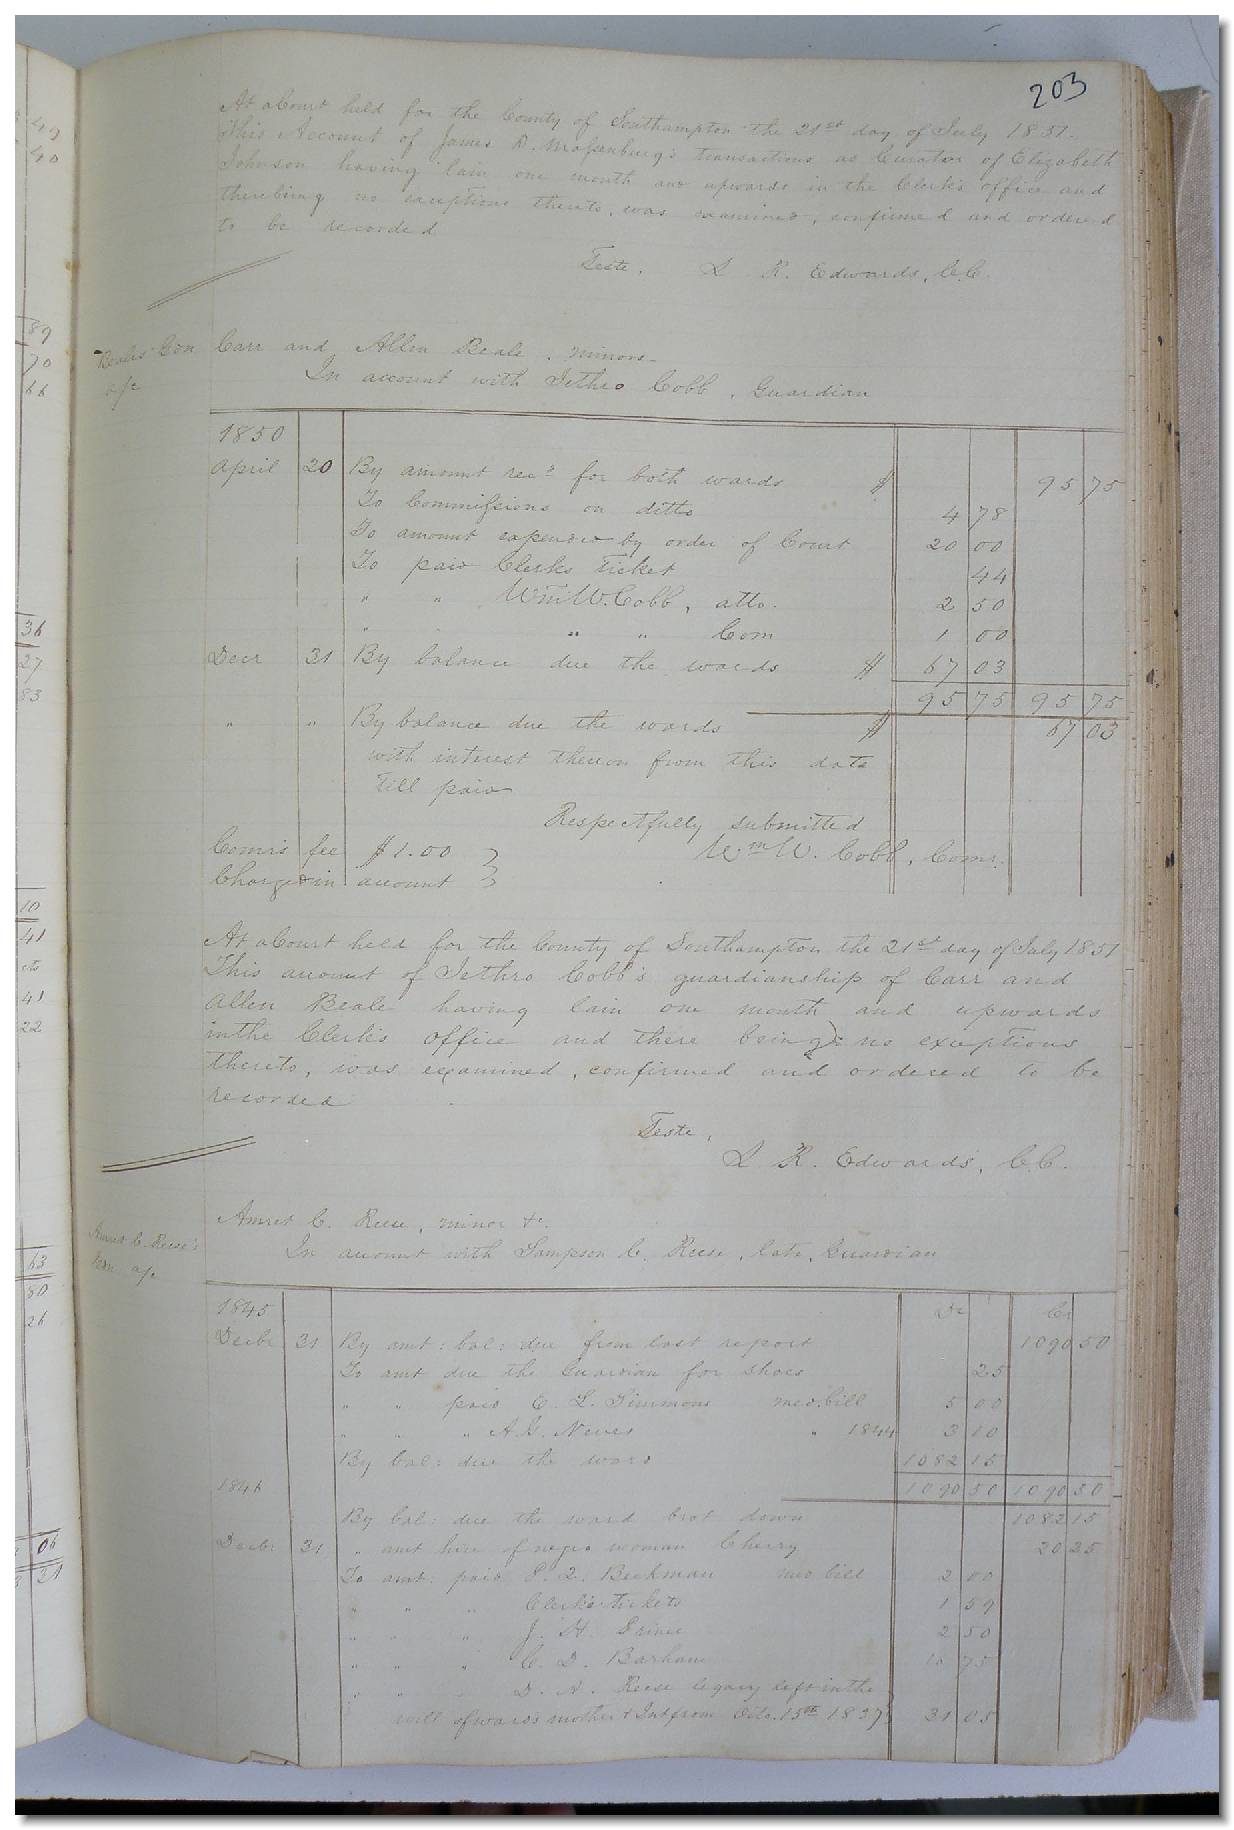 203
At a Court held for the County of Southampton the 21st day of July 1851.
This Account of James D. Massenburg's transactions as Curator of Elizabeth
Johnson having lain one month and upwards in the Clerk's office and
there being no exceptions thereto, was examined, confirmed and ordered
to be recorded
Teste, L R. Edwards, C.C.
Beales Con Carr and Allen Beale, minors
a/c In account with Jethro Cobb, Guardian
1850
April 20 By amount recd for both wards $ 95 75
To Commissions on ditto 4 78
To amount expended by order of Court 20 00
To paid Clerks Ticket 44
" " Wm W. Cobb, atto. 2 50
" " " " Com 1 00
Decr 31 By balance due the wards $ 67 03
95 75 95 75
" " By balance due the wards $ 67 03
with interest thereon from this date
till paid
Respectfully submitted
Comrs fee $1.00 } Wm W. Cobb, Comr.
Charged in account }
At a Court held for the County of Southampton the 21st day of July 1851
This account of Jethro Cobb's guardianship of Carr and
Allen Beale having lain one month and upwards
in the Clerk's office and there being no exceptions
thereto, was examined, confirmed and ordered to be
recorded
Teste,
L R. Edwards, C.C.
Amret C. Reese, minor &c.
Amret C. Reese's In account with Sampson C. Reese, late, Guardian
a/c
1845 Dr Cr
Decbr 31 By amt: bal: due from last report 1090 50
To amt due the Guardian for shoes 25
" " paid E. L. Simmons med. bill 5 00
" " " A. G. Neves " 1844 3 10
By bal: due the ward 1082 15
1846 1090 50 1090 50
By bal: due the ward brot down 1082 15
Decbr 31 " amt hire of negro woman Cherry 20 25
To amt: paid Beckman med bill 2 00
" " " Clerk's tickets 1 59
" " " J. H. Prince 2 50
" " " C. D. Barham 16 75
" " " D. A. Reese legacy left in the
will of wards mother & Int from Octo. 15th 1837 } 31 05